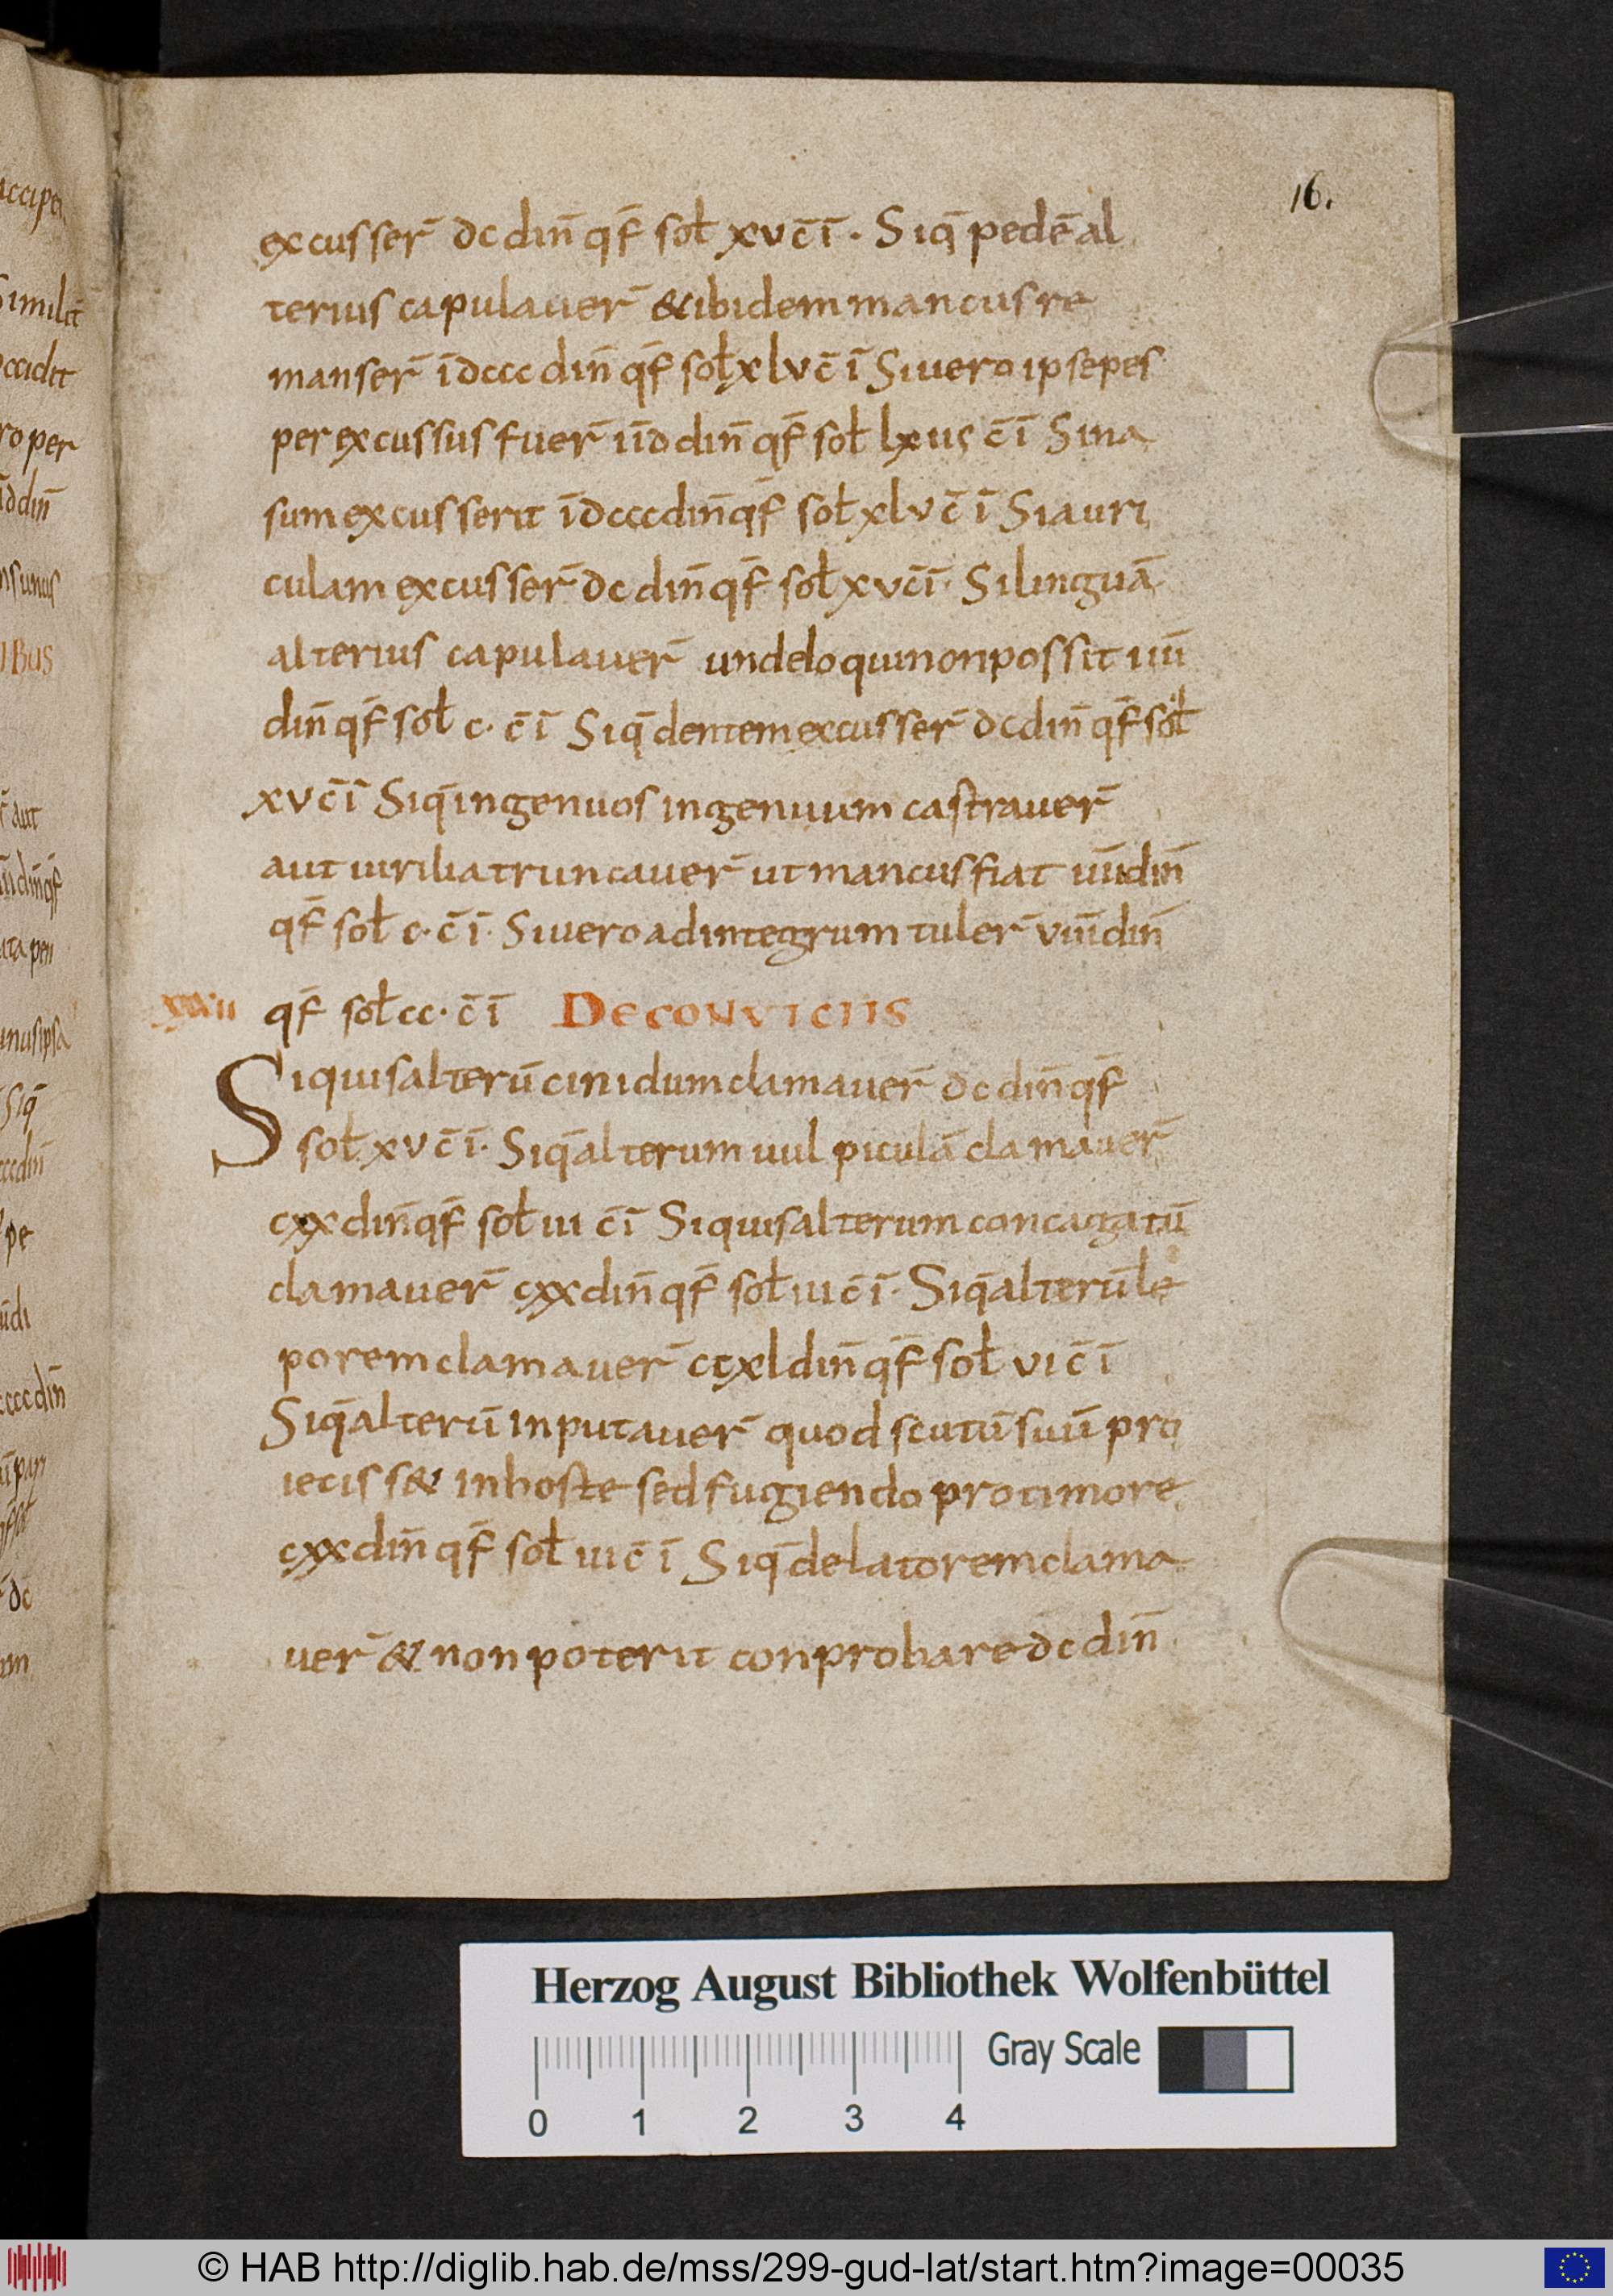 16.
excusser̄ dc din̄ qf̄ sol̄ xv c̄ ī · Siq̄ pedē al
terius capulauer̄ & ibidem mancus re
manser̄ ī dccc din̄ qf̄ sol̄ xlv c̄ ī Si uero ipse pes
perexcussus fuer̄ īī d din̄ qf̄ sol̄ lxiis c̄ ī Si na
sum excusserit ī dccc din̄ qf̄ sol̄ xlv c̄ ī Si auri
culam excusser̄ dc din̄ qf̄ sol̄ xv c̄ ī · Si linguā
alterius capulauer̄ unde loqui non possit īīīī
din̄ qf̄ sol̄ c · c̄ ī Siq̄ dentem excusser̄ dc din̄ qf̄ sol̄
xv c̄ ī Siq̄ ingenuos ingenuum castrauer̄
aut uirilia truncauer̄ ut mancus fiat īīīī din̄
qf̄ sol̄ c · c̄ ī · Si uero ad integrum tuler̄ v̄īīī din̄
xxxii qf̄ sol̄ cc · c̄ ī DE CONVICIIS
Si quis alterū cinidum clamauer̄ dc din̄ qf̄
sol̄ xv c̄ ī · Siq̄ alterum uulpiculā clamauer̄
cxx din̄ qf̄ sol̄ iii c̄ ī Si quis alterum concagatū
clamauer̄ cxx din̄ qf̄ sol̄ iii c̄ ī · Siq̄ alterū le
porem clamauer̄ ccxl din̄ qf̄ sol̄ vi c̄ ī
Siq̄ alterū inputauer̄ quod scutū suū pro
ieciss& in hoste sed fugiendo pro timore
cxx din̄ qf̄ sol̄ iii c̄ ī Siq̄ delatorem clama
uer̄ & non poterit conprobare dc din̄
Herzog August Bibliothek Wolfenbüttel
Gray Scale
0 1 2 3 4
© HAB http://diglib.hab.de/mss/299-gud-lat/start.htm?image=00035